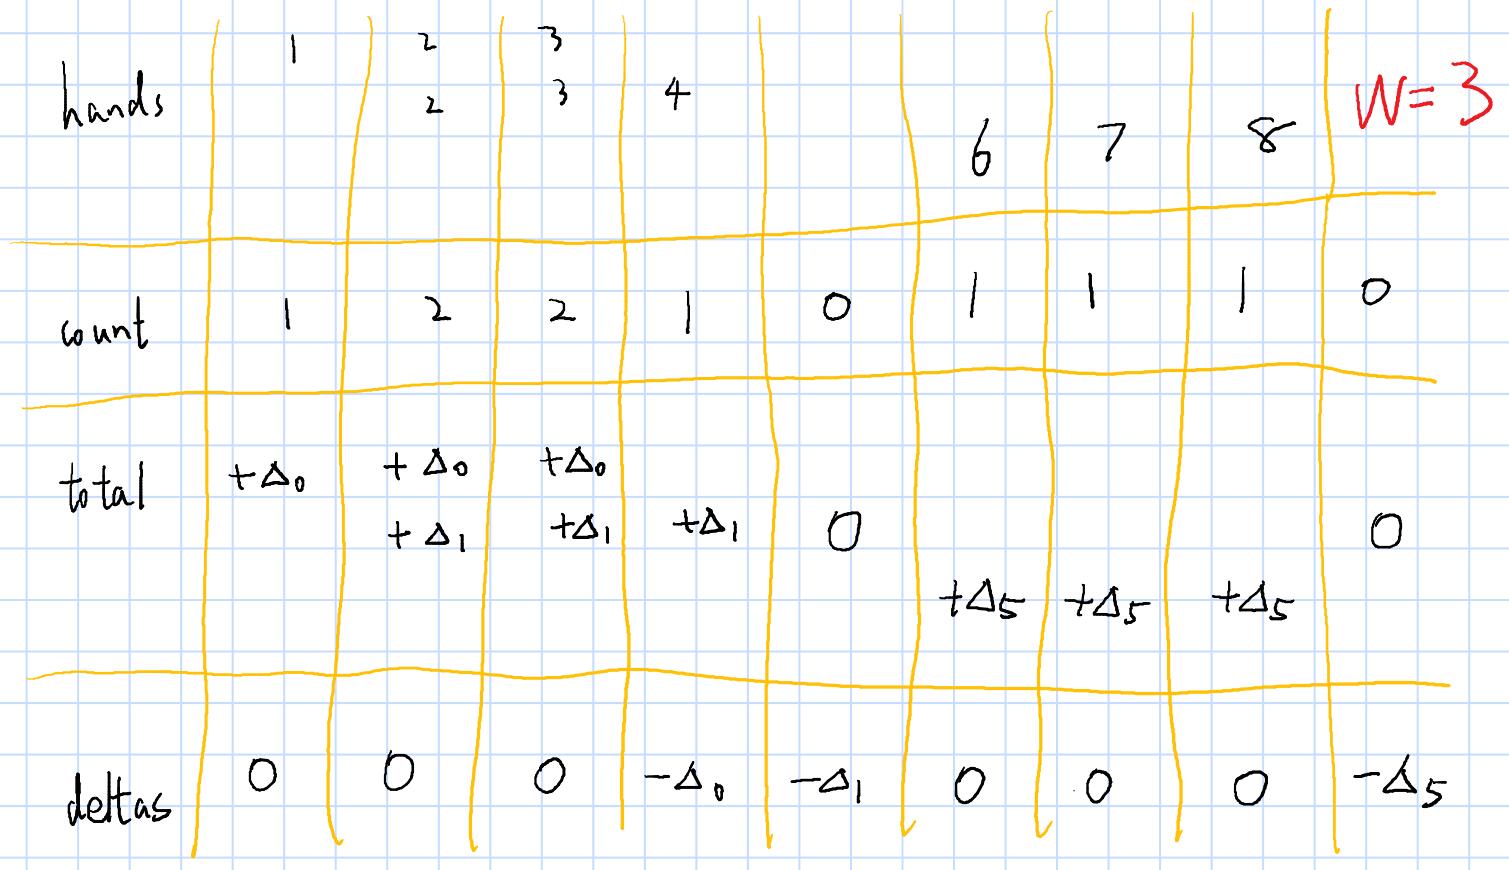 1 2 3
hands 2 3 4 6 7 8 W=3
count 1 2 2 1 0 1 1 1 0
total +Δ₀ +Δ₀ +Δ₀
+Δ₁ +Δ₁ +Δ₁ 0 0
+Δ₅ +Δ₅ +Δ₅
deltas 0 0 0 -Δ₀ -Δ₁ 0 0 0 -Δ₅